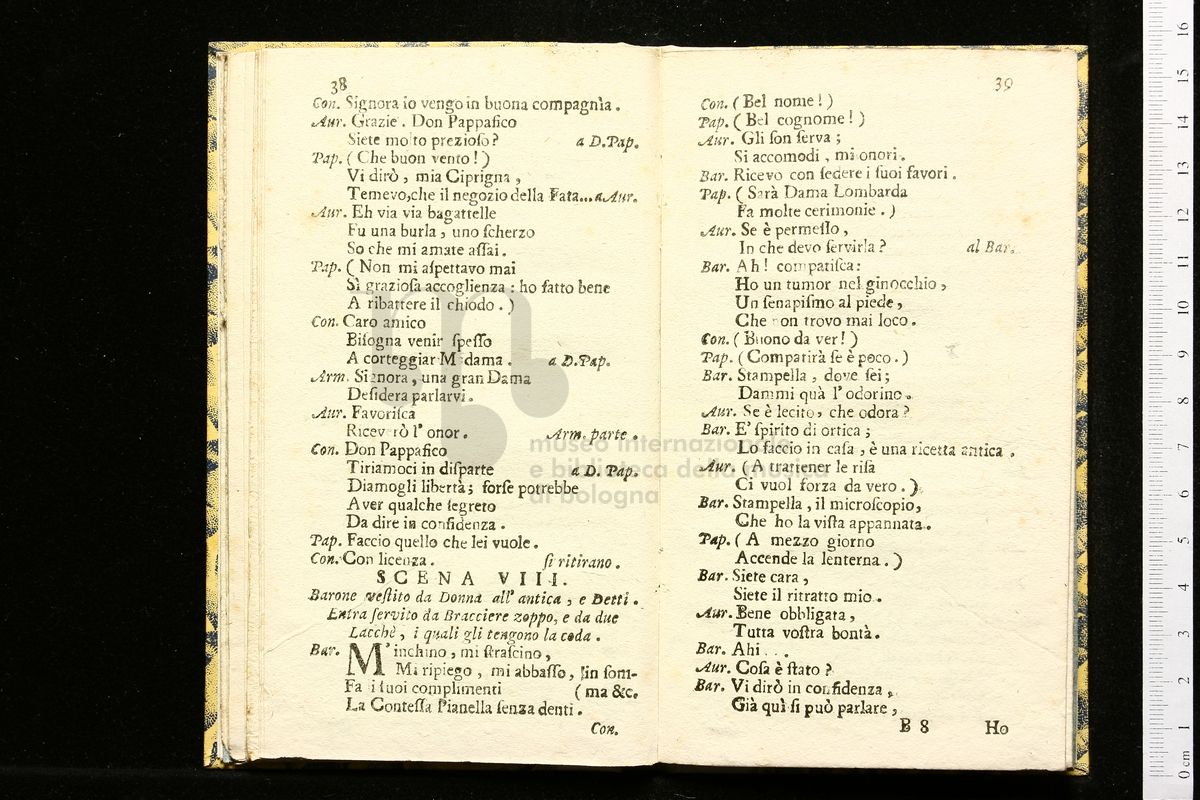 38
Con. Signora io vengo in buona compagnìa.
Aur. Grazie. Don Pappafico
Siete molto prezioſo? a D.Pap.
Pap. (Che buon vento!)
Vi dirò, mia Ciprigna,
Temevo,che il negozio della Fata...a Aur.
Aur. Eh via via bagattelle
Fu una burla, uno ſcherzo
So che mi amate aſſai.
Pap. (Non mi aſpettavo mai
Sì grazioſa accoglienza: ho fatto bene
A ribattere il chiodo.)
Con. Caro amico
Biſogna venir ſpeſſo
A corteggiar Madama. a D.Pap.
Arm. Signora, una gran Dama
Deſidera parlarvi.
Aur. Favoriſca
Riceverò l'onor. Arm. parte.
Con. Don Pappafico
Tiriamoci in diſparte a D. Pap.
Diamogli libertà; forſe potrebbe
Aver qualche ſegreto
Da dire in confidenza.
Pap. Faccio quello che lei vuole.
Con. Con licenza. ſi ritirano.
SCENA VIII.
Barone veſtito da Donna all'antica, e Detti.
Entra ſervito da Bracciere zoppo, e da due
Lacchè, i quali gli tengono la coda.
Bar. M'inchino, mi ſtraſcino,
Mi ripiego, mi abbaſſo, in ſom-
Fa i ſuoi complimenti (ma &c.
La Conteſſa Pianella ſenza denti.
Con.
39
Con. (Bel nome!)
Pap. (Bel cognome!)
Aur. Gli ſon ſerva;
Si accomodi, mi onori.
Bar. Ricevo con ſedere i ſuoi favori.
Pap. (Sarà Dama Lombarda
Fa molte cerimonie.)
Aur. Se è permeſſo,
In che devo ſervirla? al Bar.
Bar. Ah! compatiſca:
Ho un tumor nel ginocchio,
Un ſenapiſmo al piede,
Che non trovo mai loco.
Con. (Buono da ver!)
Pap. (Compatirà ſe è poco.)
Bar. Stampella, dove ſei;
Dammi quà l'odorino.
Aur. Se è lecito, che odora?
Bar. E' ſpirito di ortica;
Lo faccio in caſa, è una ricetta antica.
Aur. (A trattener le riſa
Ci vuol forza da vero.)
Bar. Stampella, il microſcopio,
Che ho la viſta appannata.
Pap. (A mezzo giorno
Accende la lenterna.)
Bar. Siete cara,
Siete il ritratto mio.
Aur. Bene obbligata,
Tutta voſtra bontà.
Bar. Ahi...
Aur. Coſa è ſtato?
Bar. Vi dirò in confidenza,
Già quì ſi può parlare,
B 8 Ho
museo internazionale
e biblioteca della musica
di bologna
0 cm 1 2 3 4 5 6 7 8 9 10 11 12 13 14 15 16